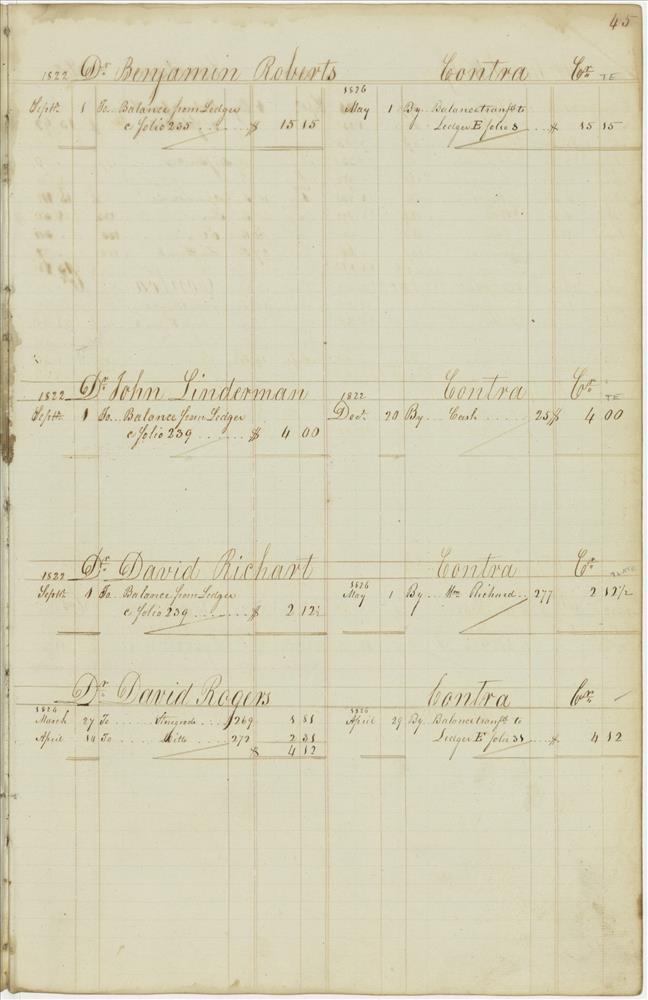 45
1822 Dr. Benjamin Roberts Contra Cr.
Septr. 1 To Balance from Ledger
C folio 235 $ 15 15
1826
May 1 By Balance transfd. to
Ledger E folio 8 $ 15 15
1822 Dr. John Linderman Contra Cr.
Septr. 1 To Balance from Ledger
C folio 239 $ 4 00
1822
Decr. 20 By Cash 25 $ 4 00
1822 Dr. David Richart Contra Cr.
Septr. 1 To Balance from Ledger
C folio 239 $ 2 12½
1826
May 1 By Wm. Richard 277 2 12½
Dr. David Rogers Contra Cr.
1826
March 27 To 269 1 81
April 14 To Ditto 272 2 31
$ 4 12
1826
April 29 By Balance transfd. to
Ledger E folio 31 $ 4 12